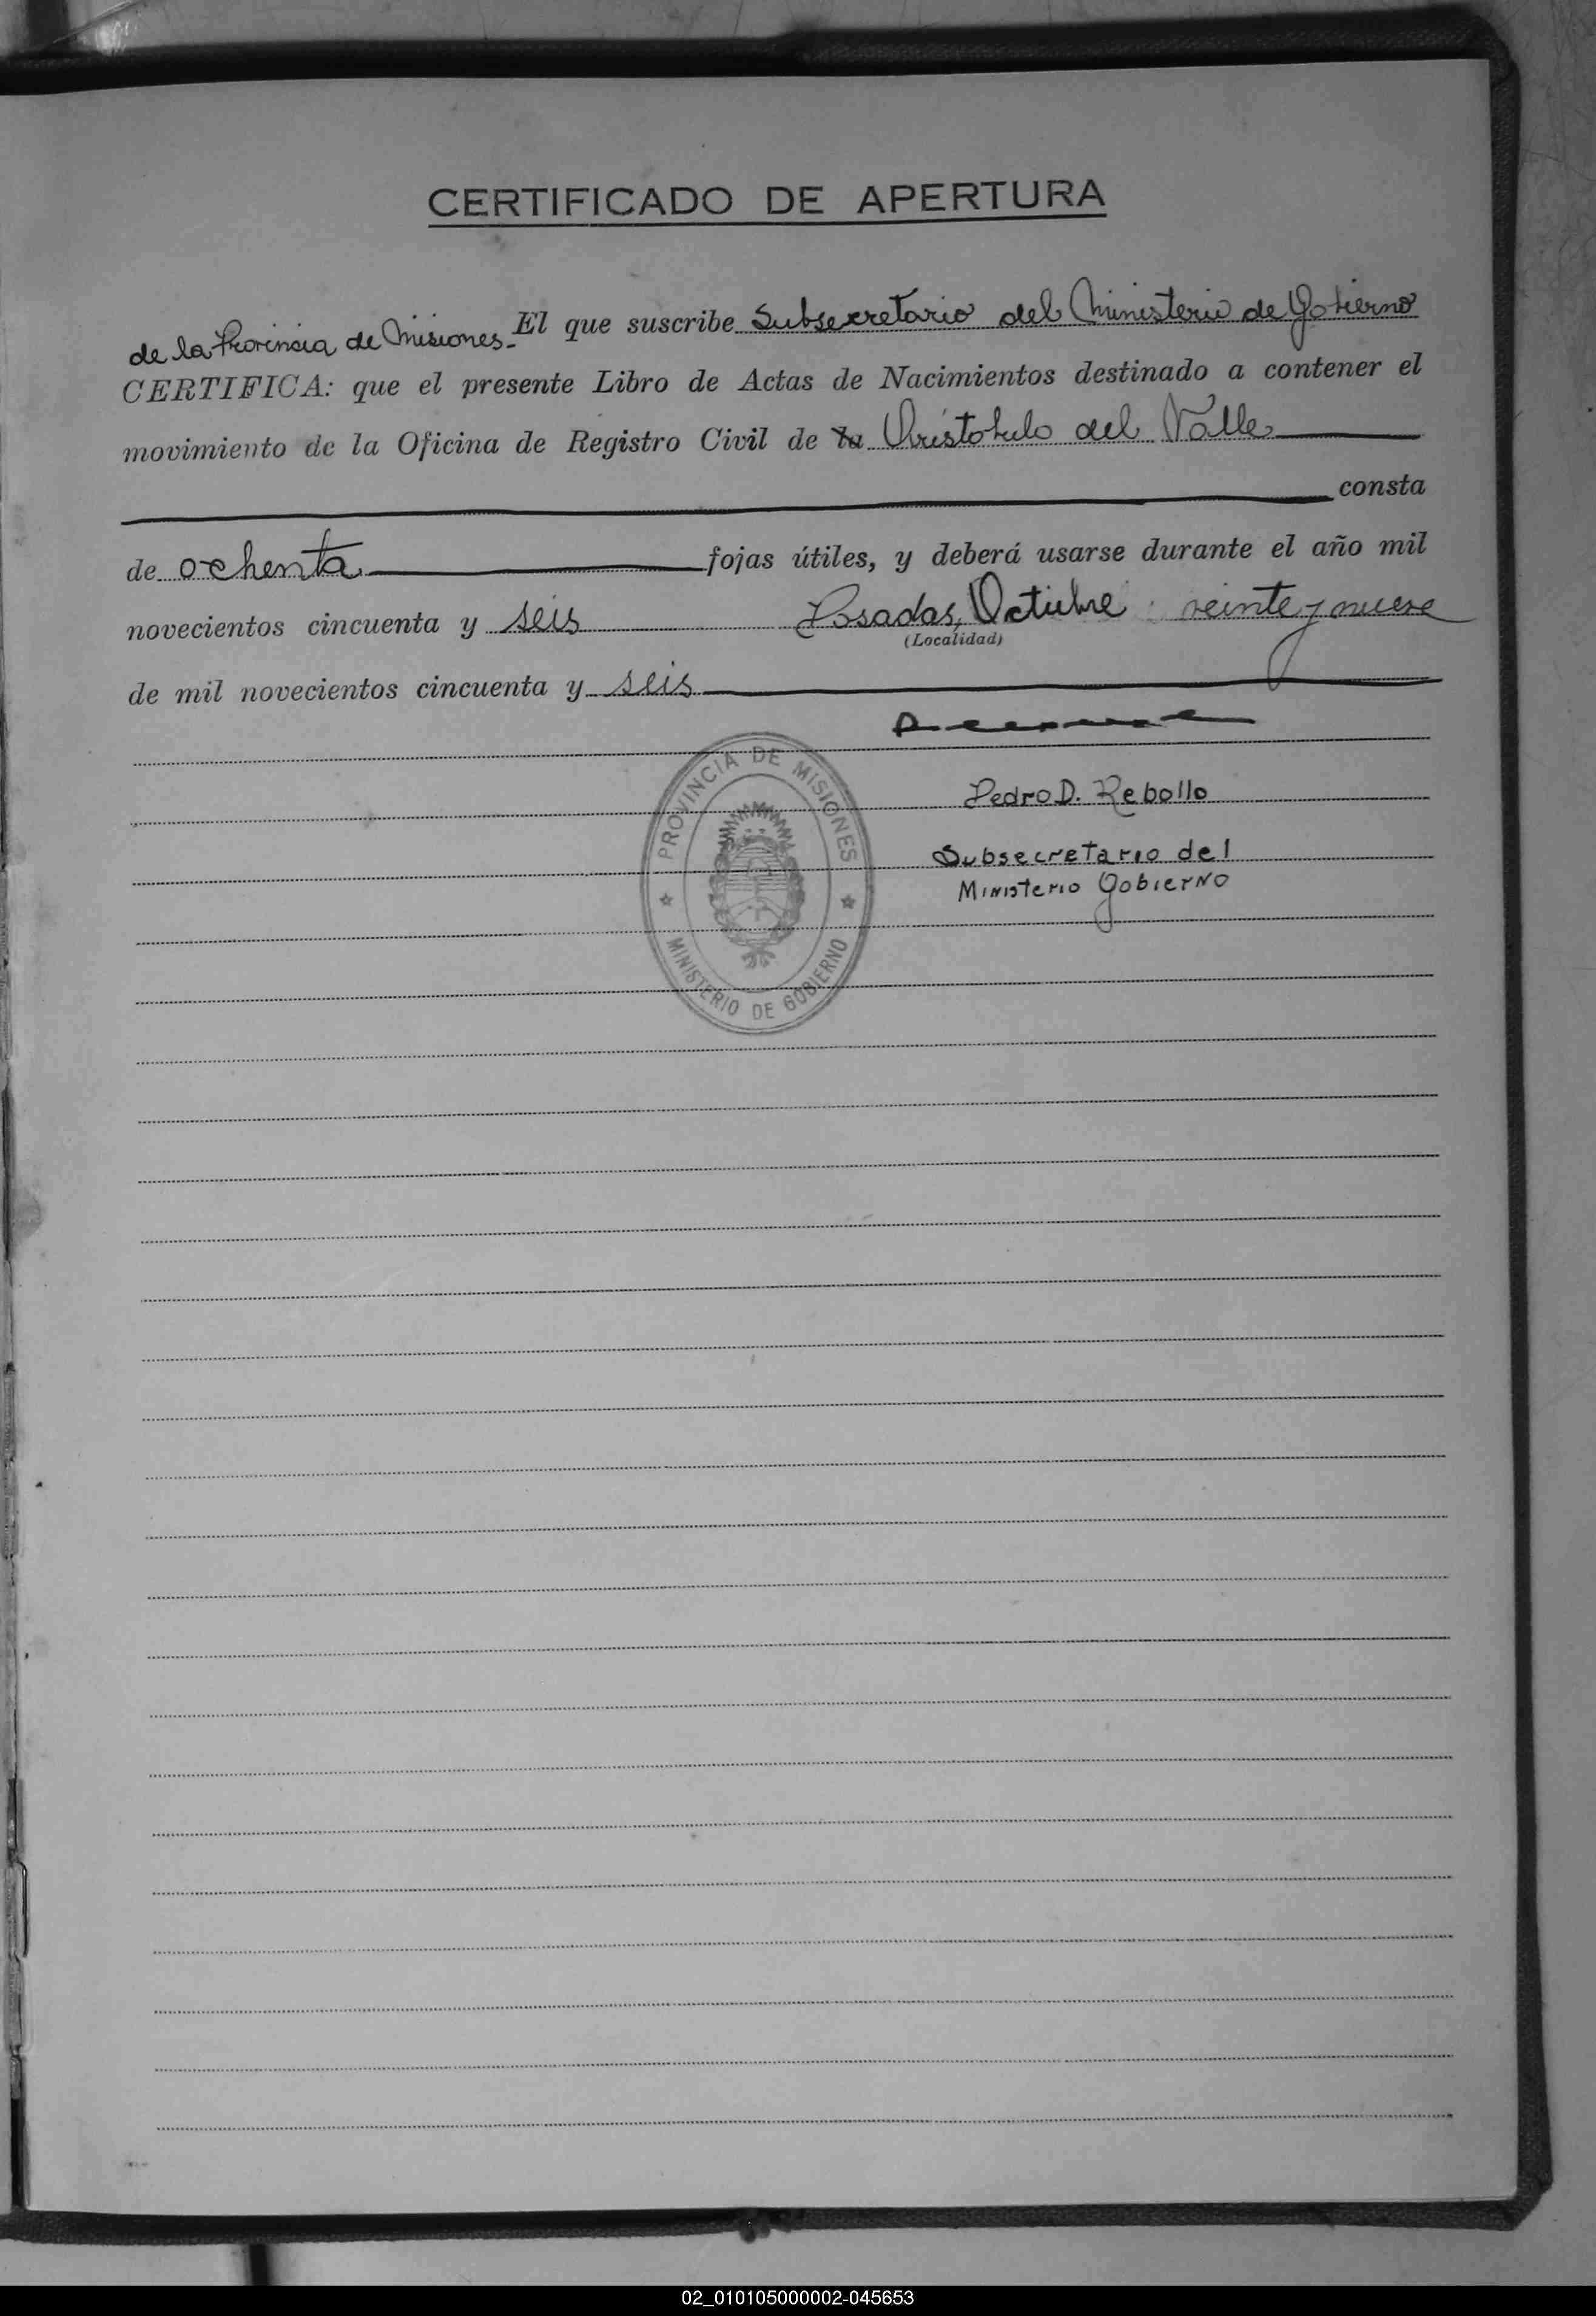 CERTIFICADO DE APERTURA
El que suscribe Subsecretario del Ministerio de Gobierno
de la Provincia de Misiones.
CERTIFICA: que el presente Libro de Actas de Nacimientos destinado a contener el
movimiento de la Oficina de Registro Civil de la Aristobulo del Valle
consta
de ochenta fojas útiles, y deberá usarse durante el año mil
novecientos cincuenta y seis Posadas, Octubre veinte y nueve
(Localidad)
de mil novecientos cincuenta y seis
PROVINCIA DE MISIONES
MINISTERIO DE GOBIERNO
Pedro D. Rebollo
Subsecretario del
Ministerio Gobierno
02_010105000002-045653